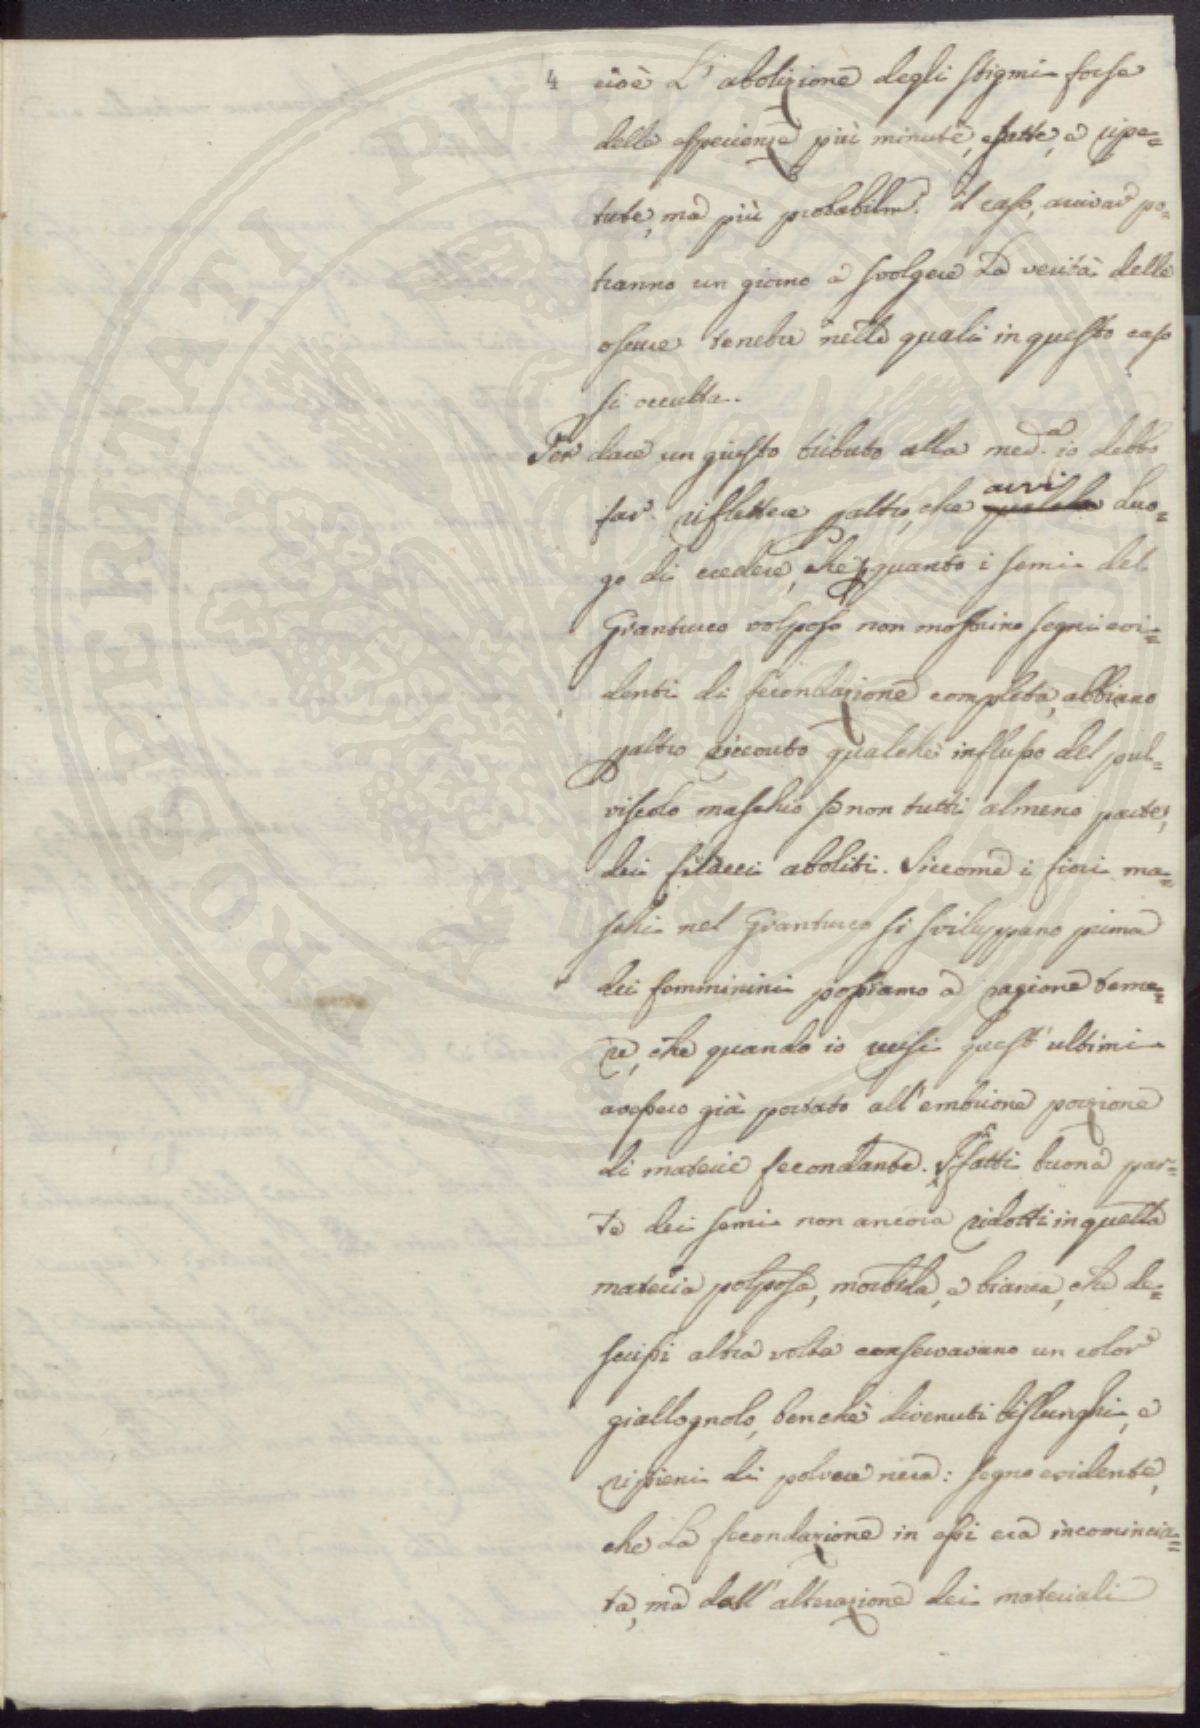 4 cioè L'abolizione degli stigmi forse
delle esperienze più minute, esatte, e ripe=
tute, ma più probabilm. il caso, arrivar po=
tranno un giorno a svolgere La verità delle
oscure tenebre nelle quali in questo caso
si occulta.
Per dare un giusto tributo alla med.a io debbo
far riflettere paltro, che avvi luo=
go di credere, che quanto i semi del
Granturco volposo non mostrino segni evi=
denti di fecondazione completa, abbiano
paltro ricevuto qualche influsso del pul=
viscolo maschio se non tutti almeno parte,
dei filacci aboliti. Siccome i fiori ma=
schi nel Granturco si sviluppano prima
dei femminini possiamo a ragione teme=
re, che quando io recisi quest'ultimi
avessero già portato all'embrione porzione
di materie fecondante. Iffatti buona par=
te dei semi non ancora ridotti in quella
materia polposa, morbida, e bianca, che de=
scrissi altra volta conservavano un color
giallognolo, benchè divenuti bislunghi, e
ripieni di polvere nera: segno evidente,
che La fecondazione in essi era incomincia=
ta, ma dall'alterazione dei materiali
PROSPERITATI PVBLICAE